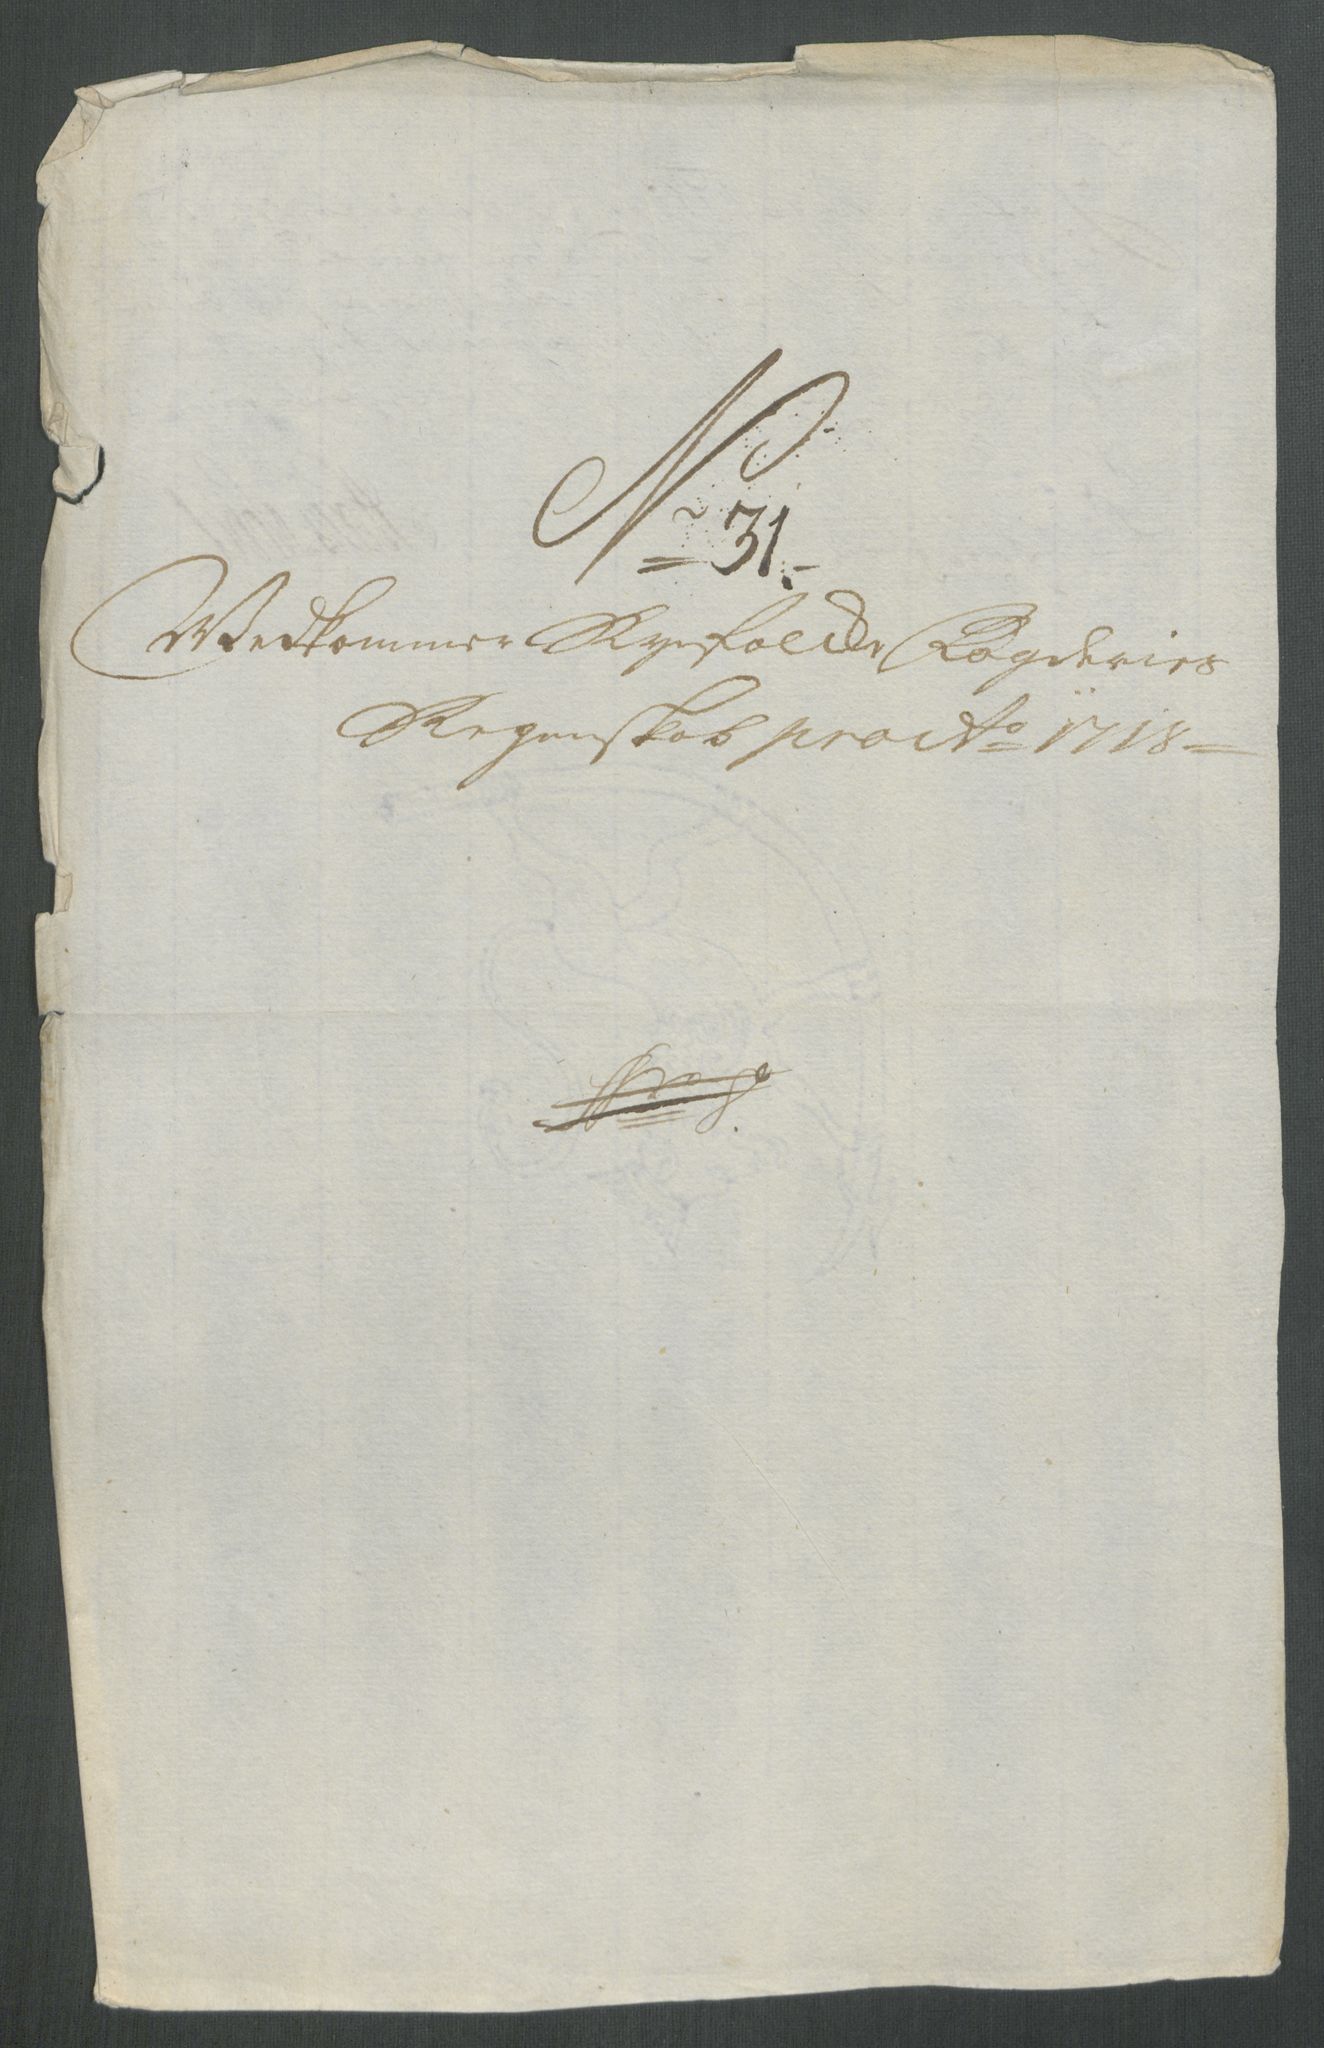 No 31.
Wedkommer Ryefolche Fogderies
Regenskab pro Ao 1718